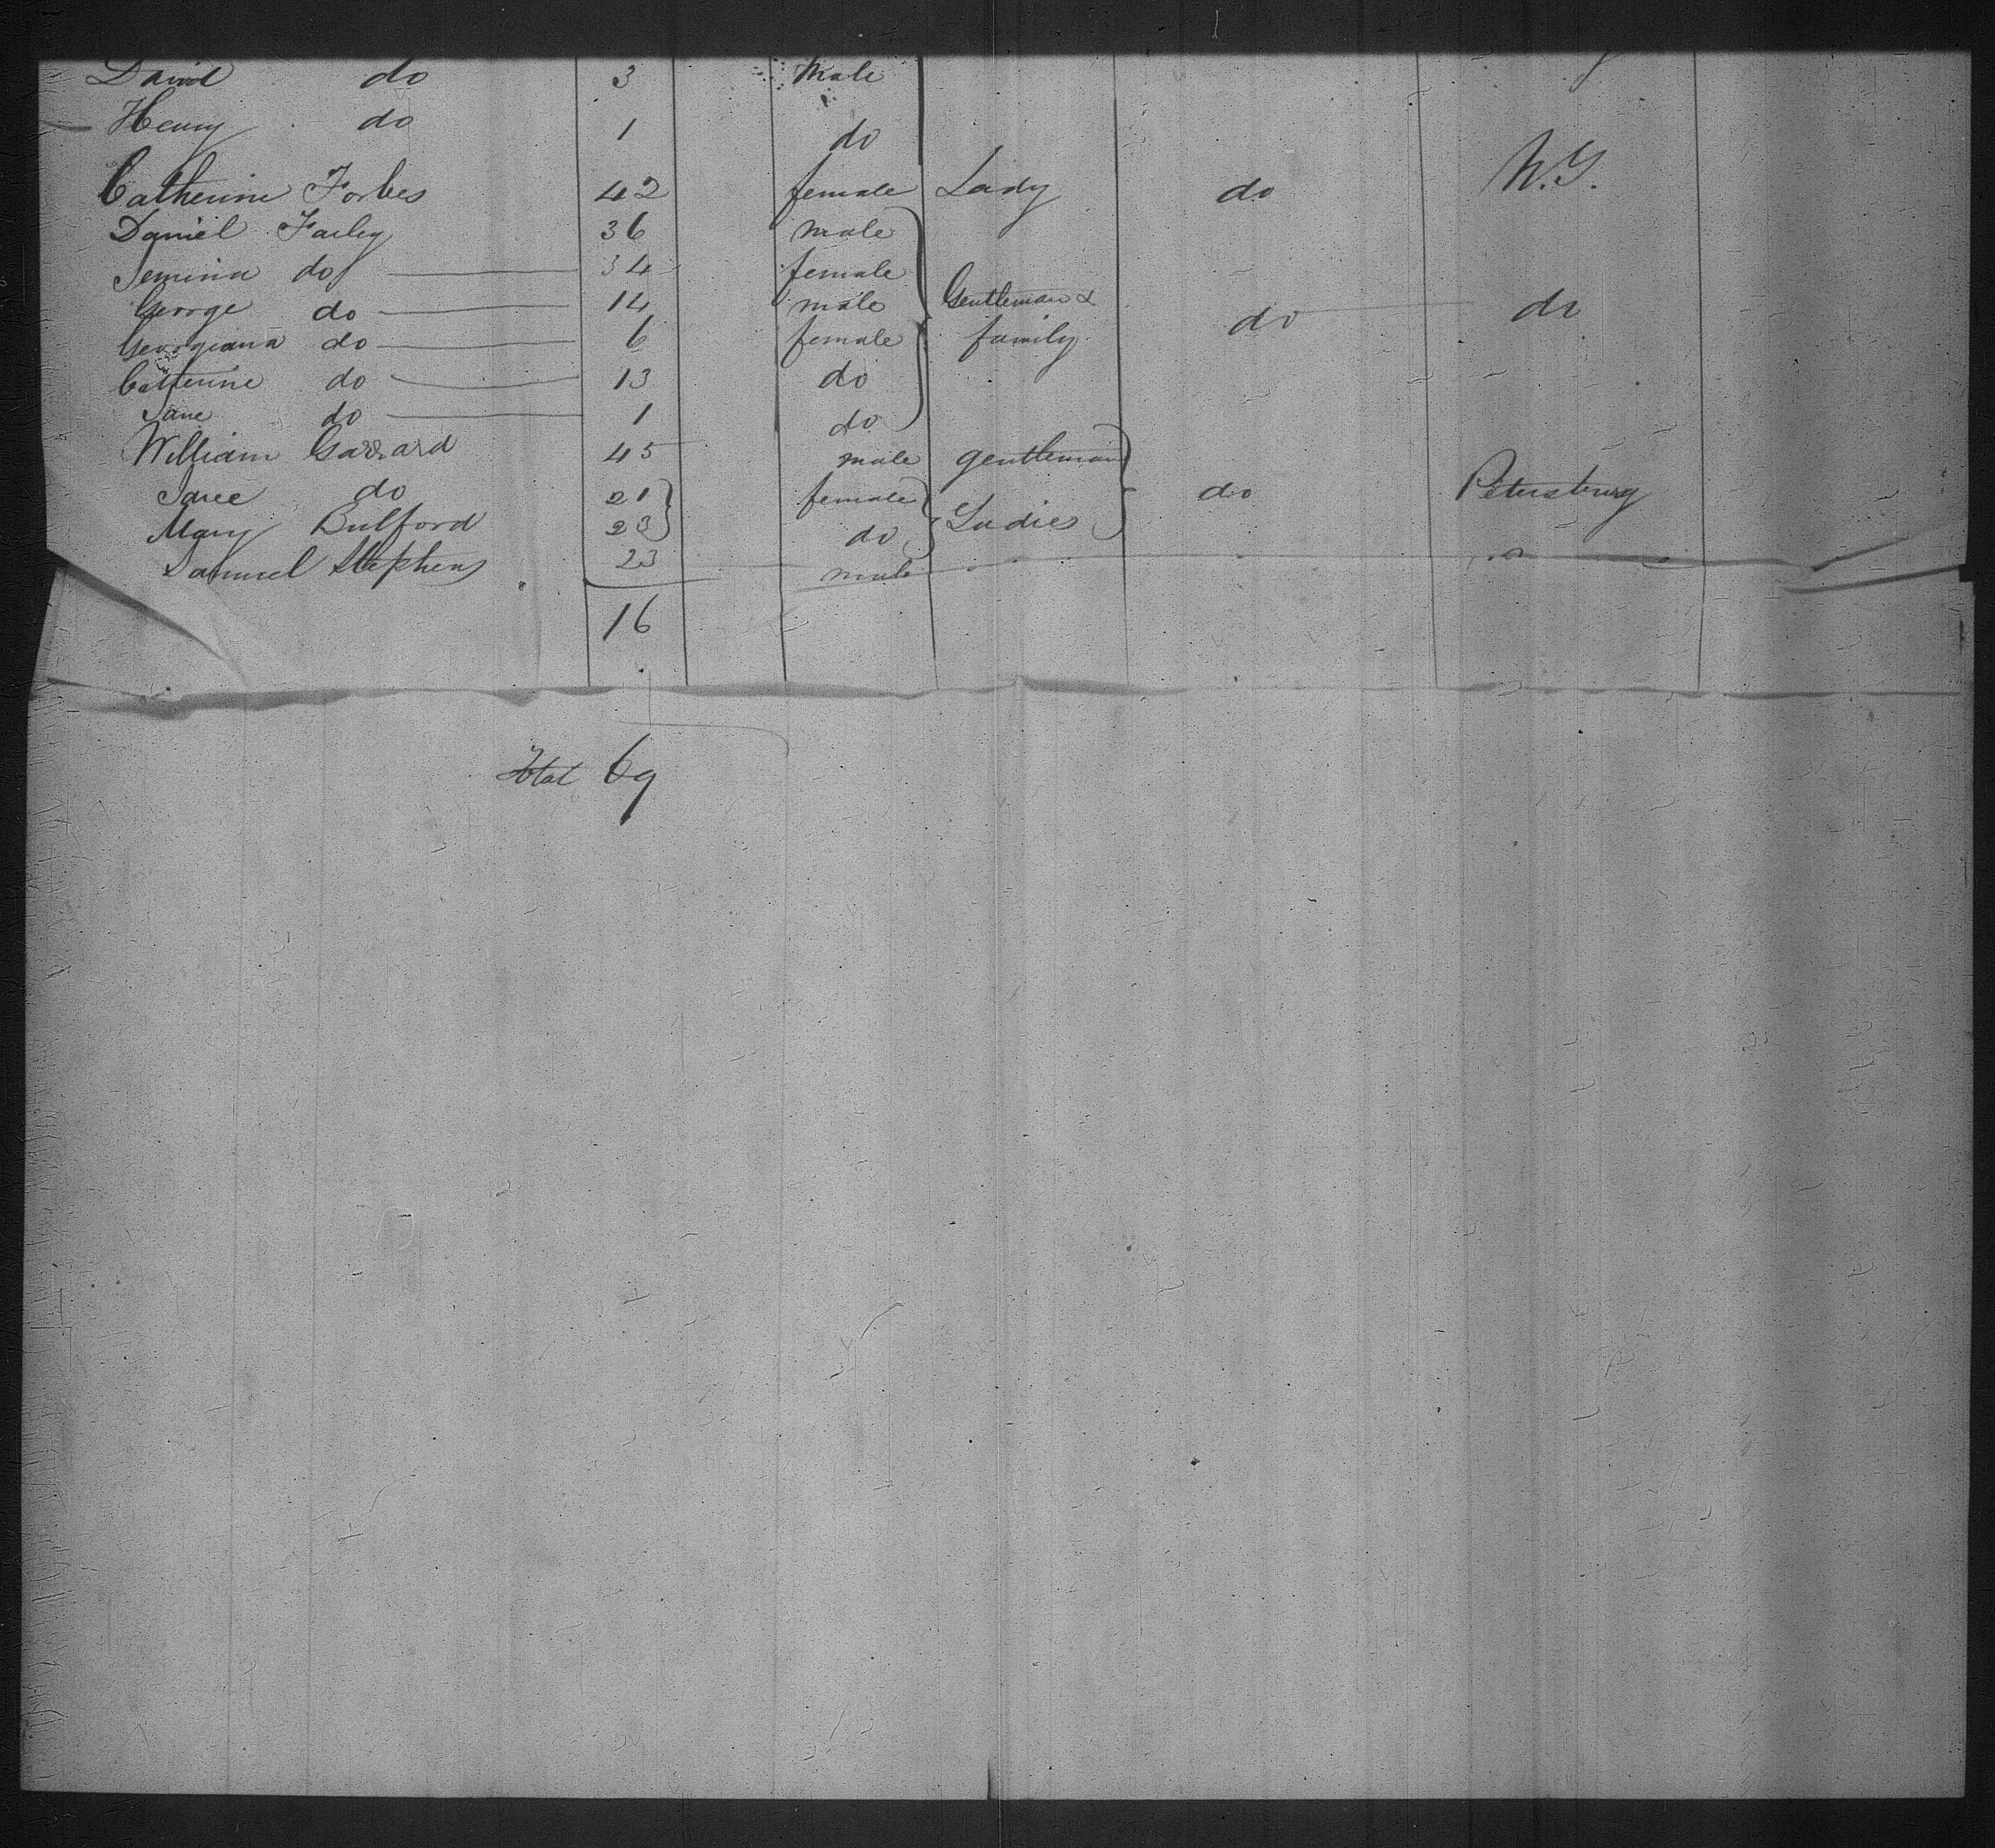 David do 3 Male
Henry do 1 do
Catherine Forbes 42 female Lady do N.Y.
Daniel Farley 36 male
Jemima do 34 female
George do 14 male Gentleman & do do
Georgiana do 6 female family
Catherine do 13 do
Jane do 1 do
William Garrard 45 male gentleman
Jane do 21 female Ladies do Petersburg
Mary Bulford 23 do
Samuel Stephens 23 male
16
Total 69